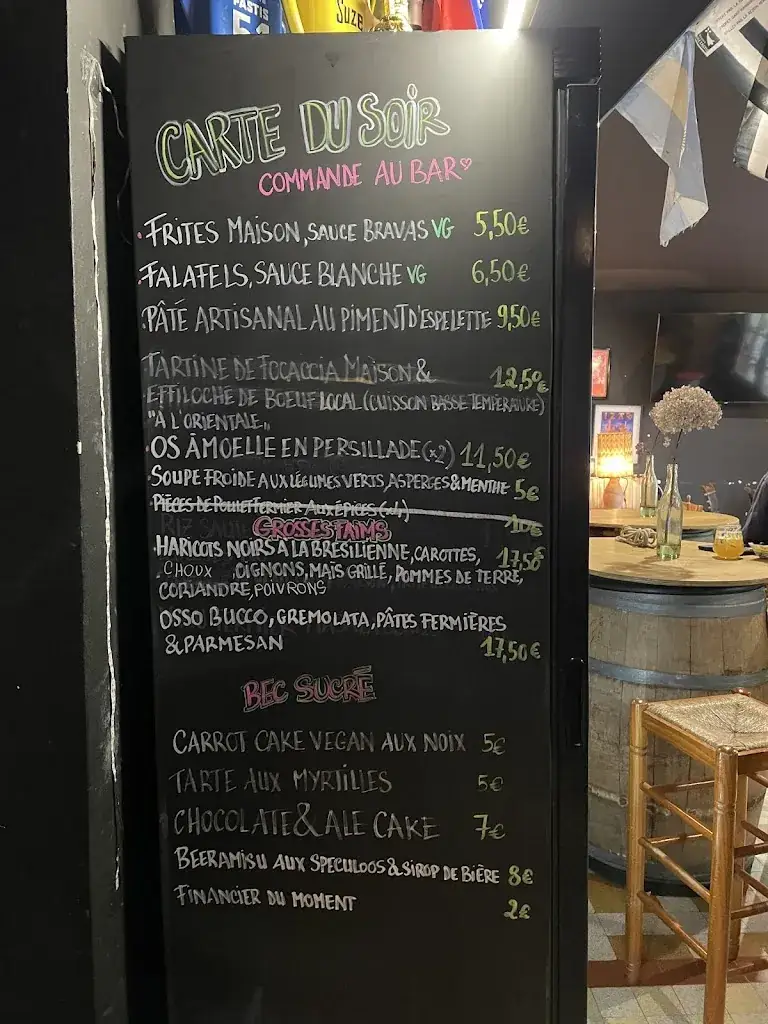 PASTIS
51
SUZE
CARTE DU SOIR
COMMANDE AU BAR
FRITES MAISON, SAUCE BRAVAS VG 5,50€
FALAFELS, SAUCE BLANCHE VG 6,50€
PÂTÉ ARTISANAL AU PIMENT D'ESPELETTE 9,50€
TARTINE DE FOCACCIA MAISON & 12,50€
EFFILOCHÉ DE BOEUF LOCAL (CUISSON BASSE TEMPÉRATURE)
"À L'ORIENTALE"
OS À MOELLE EN PERSILLADE (x2) 11,50€
SOUPE FROIDE AUX LÉGUMES VERTS, ASPERGES & MENTHE 5€
PIÈCES DE POULET FERMIER AUX ÉPICES 10€
GROSSES FAIMS
HARICOTS NOIRS À LA BRÉSILIENNE, CAROTTES, 17,50€
CHOUX, OIGNONS, MAÏS GRILLÉ, POMMES DE TERRE,
CORIANDRE, POIVRONS
OSSO BUCCO, GREMOLATA, PÂTES FERMIÈRES
& PARMESAN 17,50€
BEC SUCRÉ
CARROT CAKE VEGAN AUX NOIX 5€
TARTE AUX MYRTILLES 5€
CHOCOLATE & ALE CAKE 7€
BEERAMISU AUX SPECULOOS & SIROP DE BIÈRE 8€
FINANCIER DU MOMENT 2€